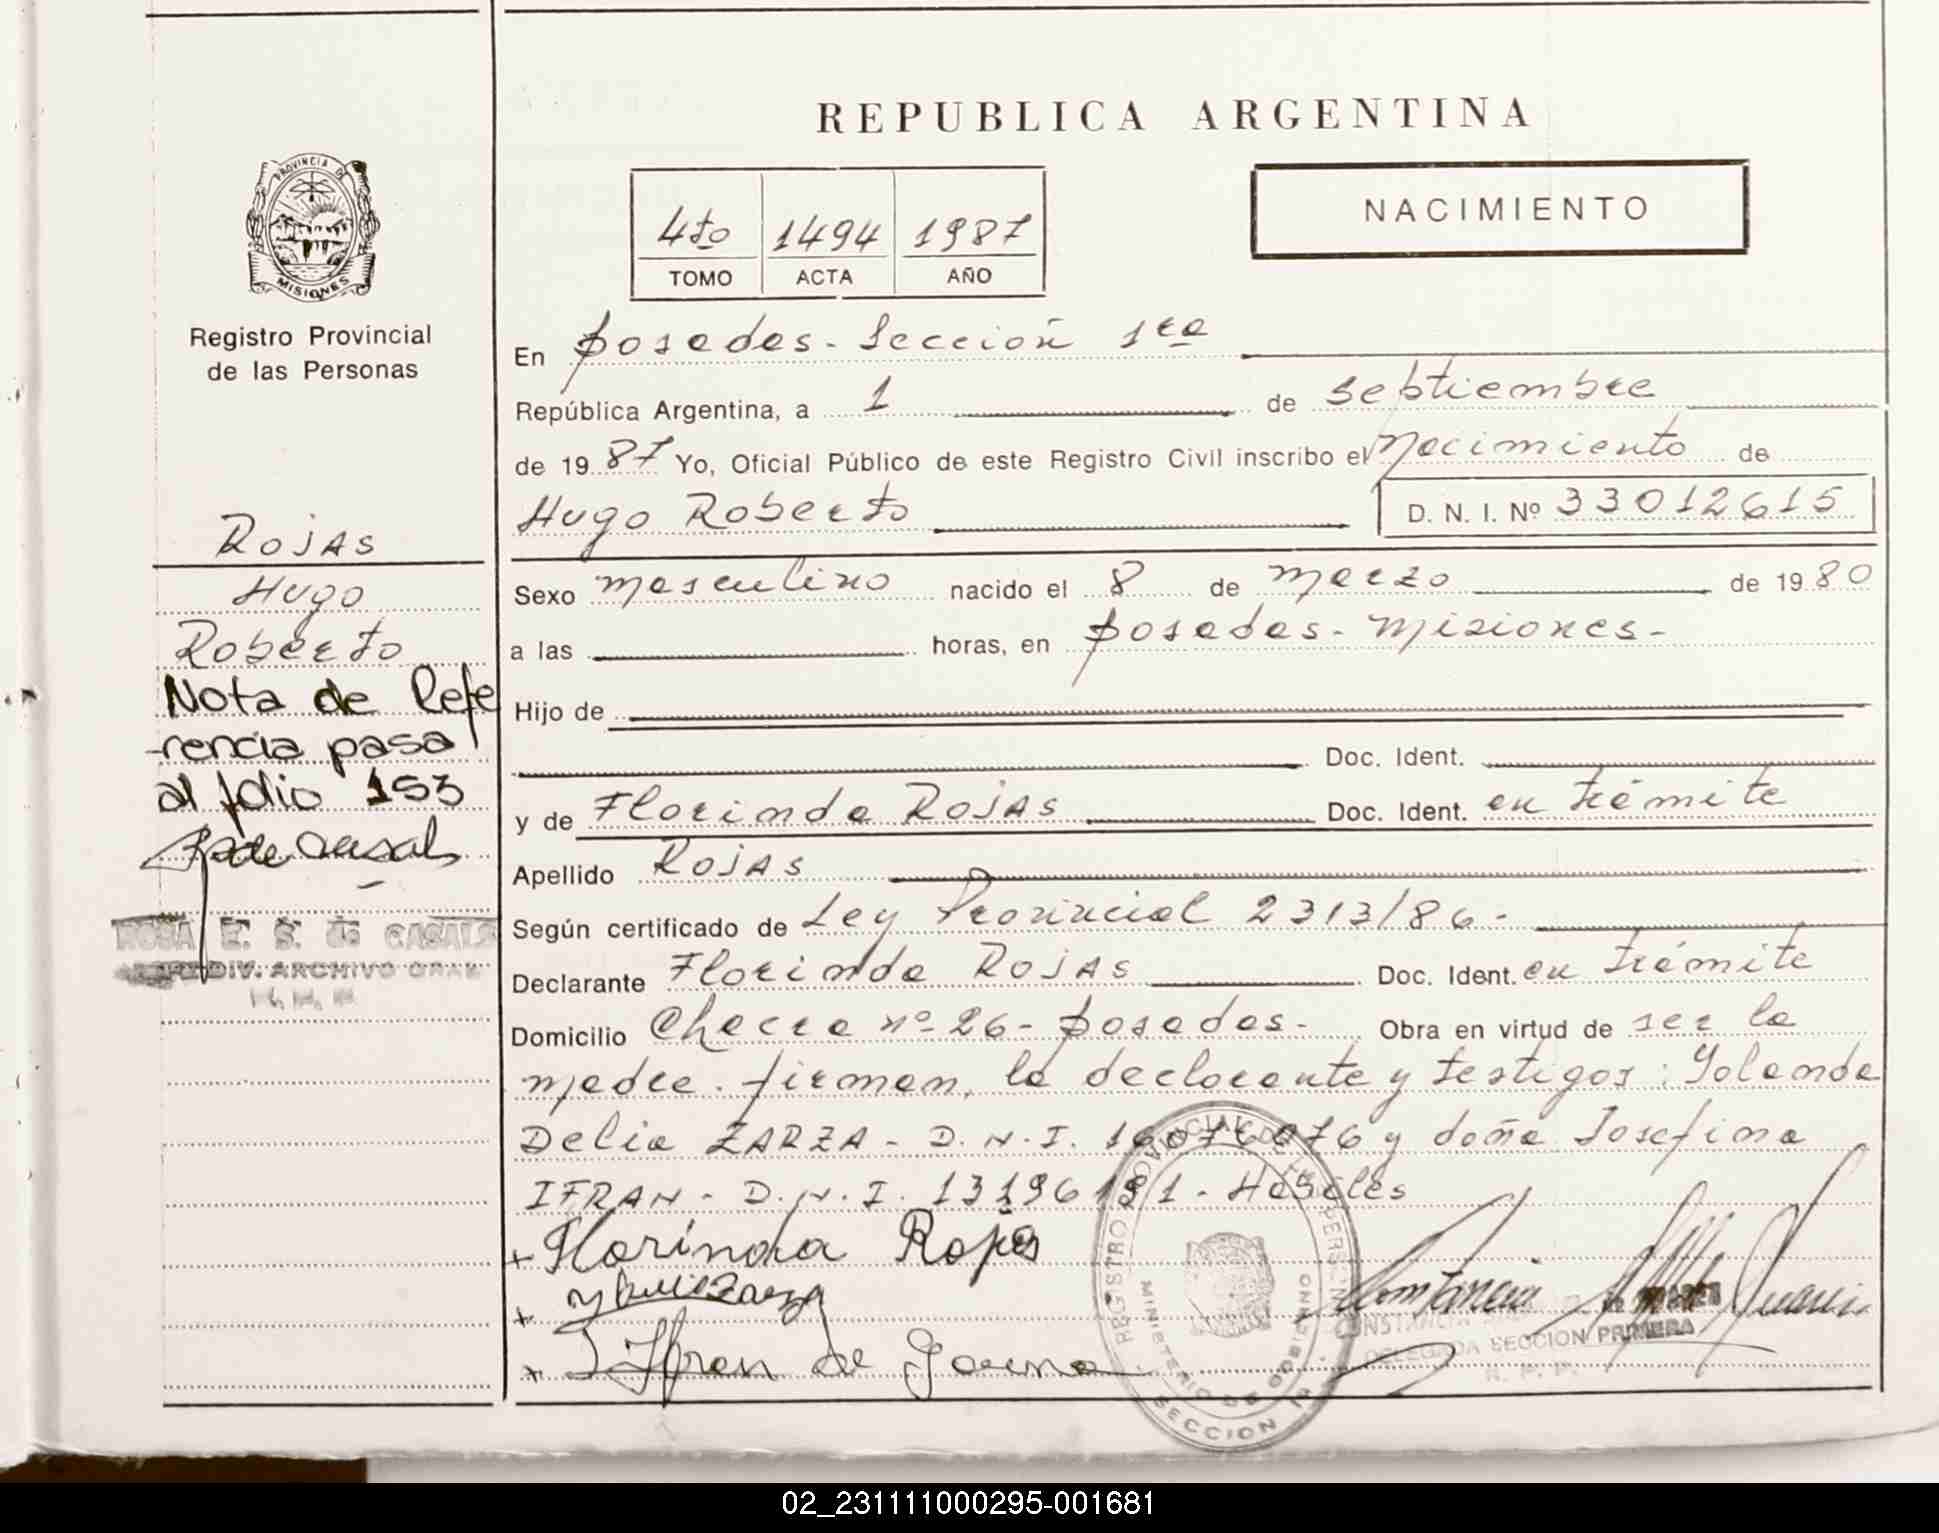 REPUBLICA ARGENTINA
PROVINCIA DE
MISIONES
Registro Provincial
de las Personas
4to 1494 1987
TOMO ACTA AÑO
NACIMIENTO
En Posadas - Sección 1ra
República Argentina, a 1 de septiembre
de 1987 Yo, Oficial Público de este Registro Civil inscribo el Nacimiento de
Hugo Roberto D. N. I. Nº 33012615
Sexo masculino nacido el 8 de marzo de 1980
a las horas, en Posadas - Misiones -
Hijo de
Doc. Ident.
y de Florinda ROJAS Doc. Ident. en trámite
Apellido ROJAS
Según certificado de Ley Provincial 2313/86 -
Declarante Florinda ROJAS Doc. Ident. en trámite
Domicilio Chacra nº 26 - Posadas - Obra en virtud de ser la
madre. firman, la declarante y testigos: Yolanda
Delia ZARZA - D.N.I. 16076076 y doña Josefina
IFRAN - D.N.I. 13196191 - Hábiles
+ Florinda Rojas
+ Zarza
+ Ifran de
ROJAS
Hugo
Roberto
Nota de Refe
-rencia pasa
al folio 153
ROSA E. S. de CASALS
DIV. ARCHIVO GRAL
REGISTRO PROVINCIAL DE LAS PERSONAS
MINISTERIO DE GOBIERNO
SECCION 1a
CONSTANCIA
DELEGADA SECCION PRIMERA
R. P. P.
02_231111000295-001681